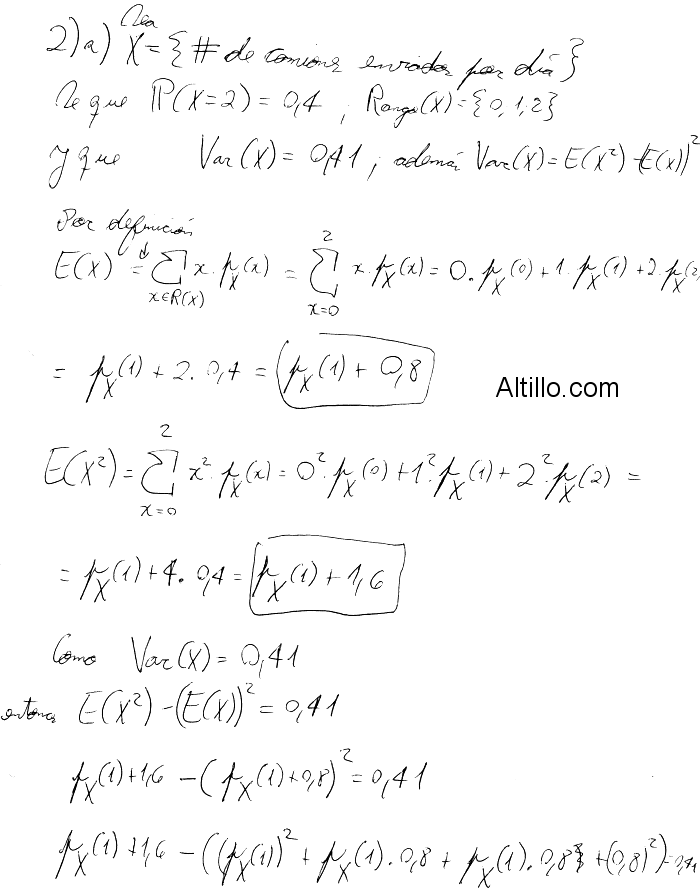 2)a) Sea X = {# de camiones enviados por día}
Se que P(X=2) = 0,4 ; Rango(X) = {0,1,2}
y que Var(X) = 0,41 ; además Var(X) = E(X²) - (E(X))²
Por definición
E(X) = ∑_{x∈R(X)} x . p_X(x) = ∑_{x=0}^{2} x . p_X(x) = 0 . p_X(0) + 1 . p_X(1) + 2 . p_X(2
= p_X(1) + 2 . 0,4 = p_X(1) + 0,8
Altillo.com
E(X²) = ∑_{x=0}^{2} x² . p_X(x) = 0² . p_X(0) + 1² . p_X(1) + 2² . p_X(2) =
= p_X(1) + 4 . 0,4 = p_X(1) + 1,6
Como Var(X) = 0,41
entonces E(X²) - (E(X))² = 0,41
p_X(1) + 1,6 - (p_X(1) + 0,8)² = 0,41
p_X(1) + 1,6 - ((p_X(1))² + p_X(1) . 0,8 + p_X(1) . 0,8 + (0,8²) = 0,41